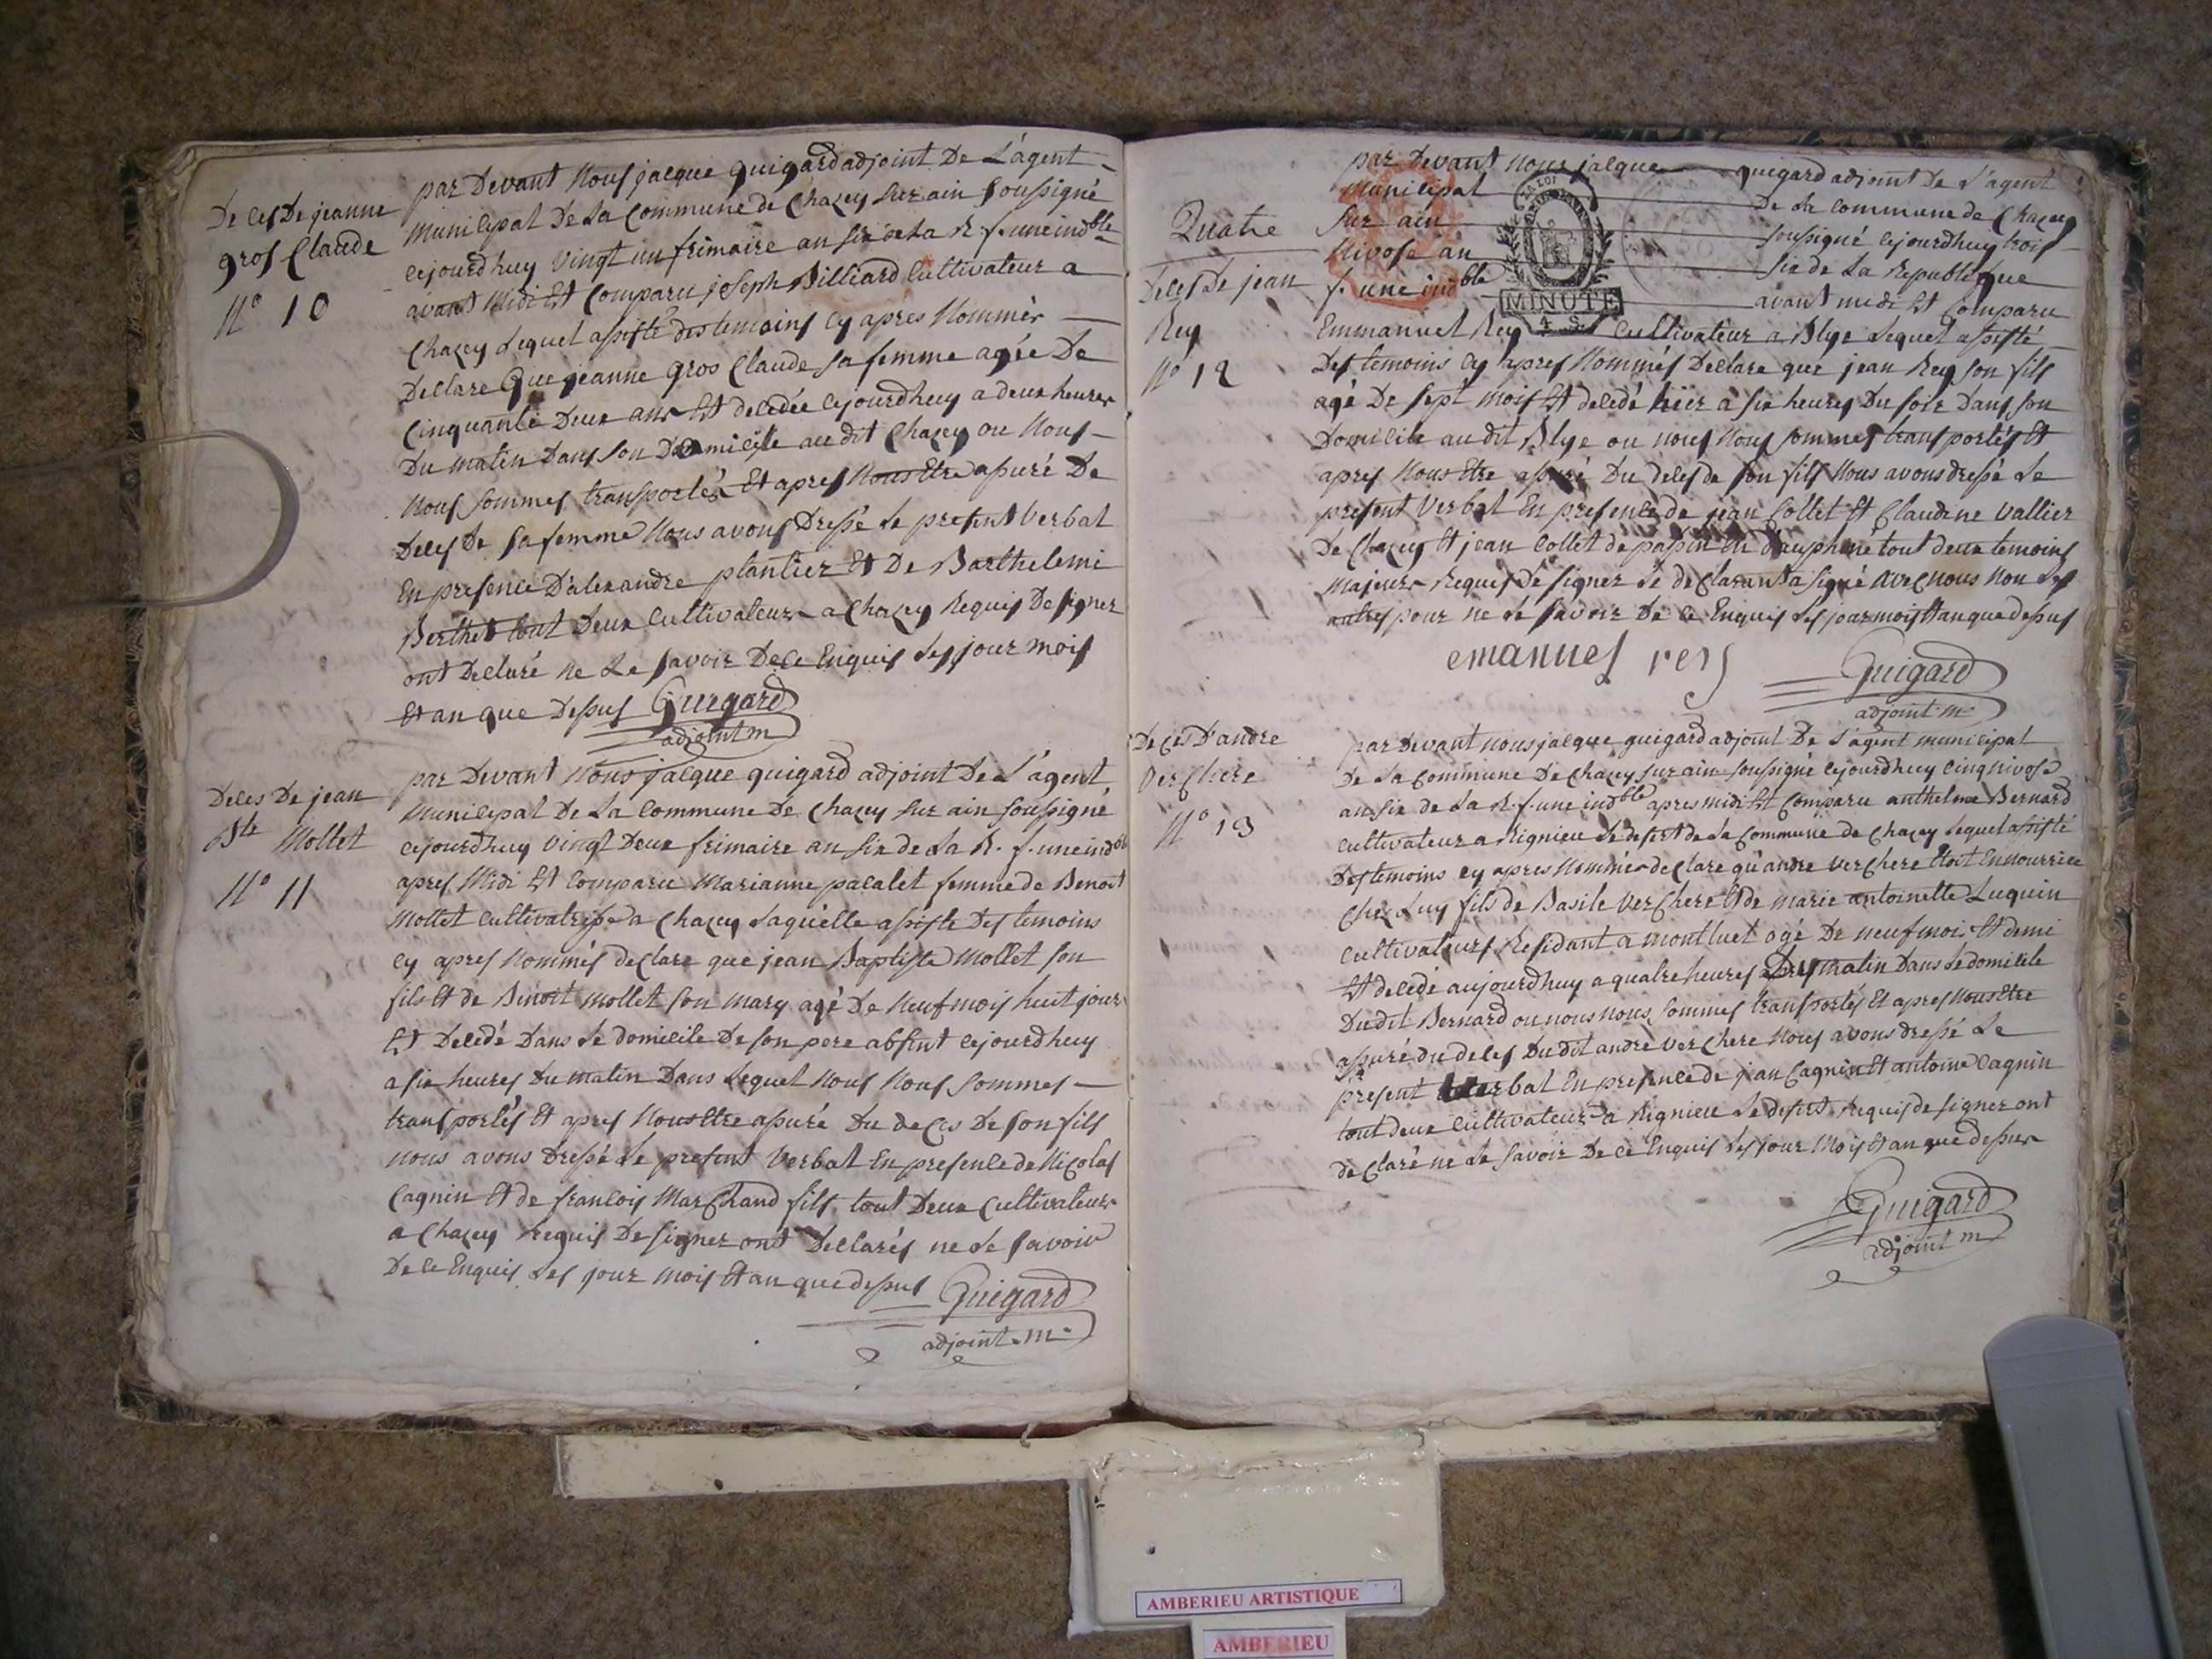 Deces De jeanne
gros Claude
N° 10
par Devant Nous jacque guigard adjoint De L'agent
municipal De La Commune de Chazey sur ain soussigné
cejourdhuy vingt un frimaire an six de La R. f. une indble
avant Midi Est Comparu joseph Billiard Cultivateur a
Chazey Lequel assisté des temoins cy apres Nommés
Declare Que jeanne gros Claude sa femme agée De
Cinquante Deux ans Est decedée cejourdhuy a deux heures
Du matin Dans son Domicile au dit Chazey ou Nous
Nous sommes transportés Et apres Nous Etre assuré De
Deces De sa femme Nous avons Dressé Le present Verbal
En presence D'alexandre plantier Et De Barthelemi
Berthet tout Deux Cultivateurs a Chazey Requis De signer
ont Declaré ne Le savoir De ce Enquis Les jour mois
Et an que Dessus Guigard
adjoint m
Deces De jean
Bte Mollet
N° 11
par Devant Nous jacque guigard adjoint De L'agent
Municipal De La Commune De Chazey sur ain soussigné
cejourdhuy vingt Deux frimaire an six de La R. f. une indble
apres Midi Est Comparue Marianne pacalet femme de Benoit
Mollet Cultivatrisse a Chazey Laquelle assiste Des temoins
cy apres Nommés declare que jean Baptiste Mollet son
fils Et de Binoit mollet son mary agé De Neuf mois huit jours
Est Decedé Dans Le domicile De son pere absent cejourdhuy
a six heures Du matin Dans Lequel Nous Nous sommes
transportés Et apres Nous Etre assuré Du deces De son fils
nous avons dressé Le present Verbal En presence de Nicolas
Cagnin Et de francois Marchand fils tout Deux Cultivateurs
a Chazey Requis De signer ont Declarés ne Le savoir
De ce Enquis Les jour mois Et an que dessus Guigard
adjoint. m.
Quatre
Deces De jean
Rey
N° 12
LA LOI
MINUTE
4. S.
par Devant nous jacque guigard adjoint De L'agent
Municipal De La Commune de Chazey
sur ain soussigné cejourdhuy trois
Nivose an six de La Republique
f. une indble avant midi Est Comparu
Emmanuel Rey Cultivateur a Blye Lequel assisté
Des temoins cy apres Nommés Declare que jean Rey son fils
agé De sept mois Est decedé hier a six heures Du soir Dans son
Domicile au dit Blye ou nous Nous sommes transportés Et
apres Nous Etre assuré Du deces de son fils Nous avons dressé Le
present Verbal En presence de jean Collet Et Claudine Vallier
De Chazey Et jean Collet de passin En dauphiné tout deux temoins
Majeurs Requis de signer Le declarant a signé avec nous Non Les
autres pour ne Le savoir De ce Enquis Les jour mois Et an que dessus
emanuel rey
Guigard
adjoint m
Deces D'andre
Verchere
N° 13
par Devant nous jacque guigard adjoint De L'agent municipal
De La Commune De Chazey sur ain soussigné cejourdhuy cinq nivose
an six de La R. f. une indble apres midi Est Comparu anthelme Bernard
cultivateur a Rignieu Le desert de La Commune de Chazey Lequel assisté
Des temoins cy apres Nommés declare qu'andre verchere Etoit En nourrice
Chez Luy fils de Basile Verchere Et de Marie antoinette Luquin
cultivateurs Residant a montluet agé De neuf mois Et demi
Est decedé aujourdhuy a quatre heures Du matin Dans Le domicile
Du dit Bernard ou nous nous sommes transportés Et apres Nous Etre
assuré du deces Du dit andre verchere Nous avons dressé Le
present verbal En presence de jean Cagnin Et antoine Cagnin
tout deux cultivateurs a Rignieu Le desert Requis de signer ont
declaré ne Le savoir De ce Enquis Les jour Mois Et an que dessus
Guigard
adjoint m
AMBERIEU ARTISTIQUE
AMBERIEU